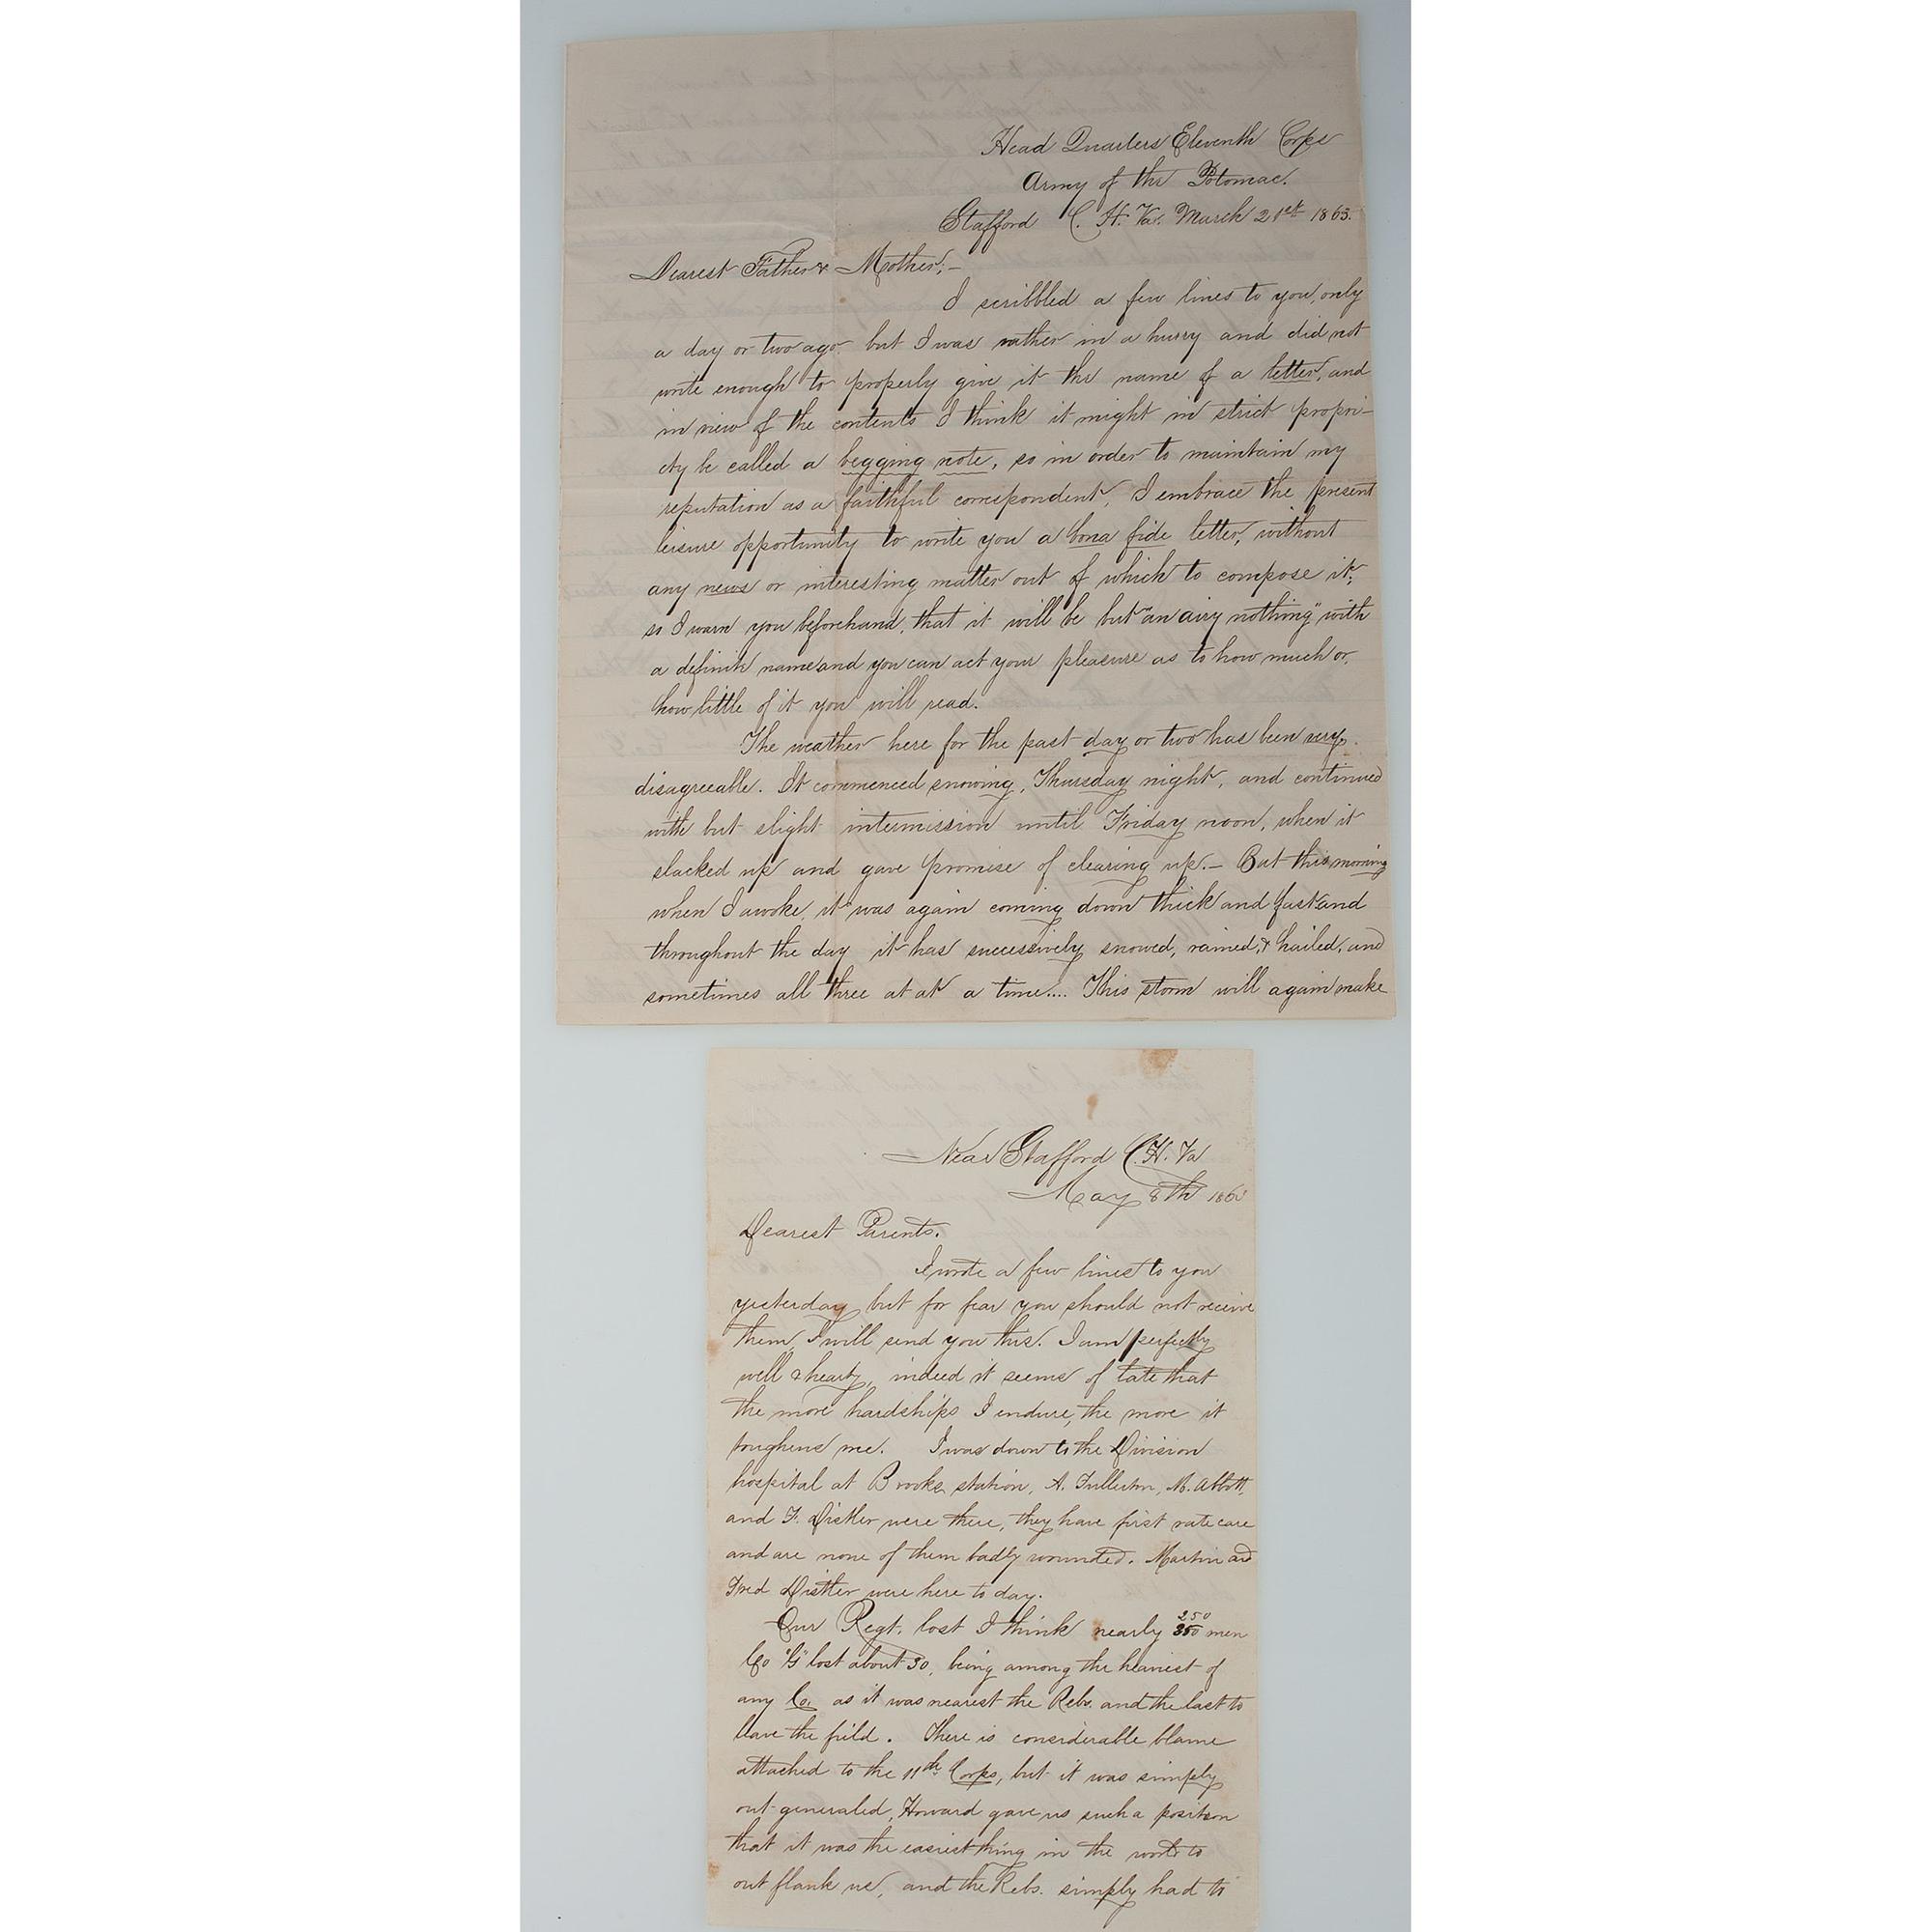 Head Quarters Eleventh Corps
Army of the Potomac.
Stafford C. H. Va. March 21st 1863.
Dearest Father & Mother;—
I scribbled a few lines to you, only
a day or two ago but I was rather in a hurry and did not
write enough to properly give it the name of a letter, and
in view of the contents I think it might in strict propri-
ety be called a begging note, so in order to maintain my
reputation as a faithful correspondent, I embrace the present
leisure opportunity to write you a bona fide letter, without
any news or interesting matter out of which to compose it;
so I warn you beforehand, that it will be but "an airy nothing" with
a definite name and you can act your pleasure as to how much or
how little of it you will read.
The weather here for the past day or two has been very
disagreeable. It commenced snowing, Thursday night, and continued
with but slight intermission until Friday noon, when it
slacked up and gave promise of clearing up.— But this morning
when I awoke, it was again coming down thick and fast and
throughout the day it has successively snowed, rained, & hailed, and
sometimes all three at at a time.... This storm will again make
Near Stafford C.H. Va
May 8th 186
Dearest Parents.
I wrote a few lines to you
yesterday but for fear you should not receive
them, I will send you this. I am perfectly
well & hearty, indeed it seems of late that
the more hardships I endure, the more it
toughens me. I was down to the Division
hospital at Brooks station, A. Fullerton, M. Abbott,
and F. Distler were there, they have first rate care
and are none of them badly wounded. Martin and
Fred Distler were here to day.
Our Regt. lost I think nearly 250 men
Co "G" lost about 30, being among the heaviest of
any Co. as it was nearest the Rebs. and the last to
leave the field. There is considerable blame
attached to the 11th Corps, but it was simply
out-generaled, Howard gave us such a position
that it was the easiest thing in the world to
out flank us, and the Rebs. simply had to